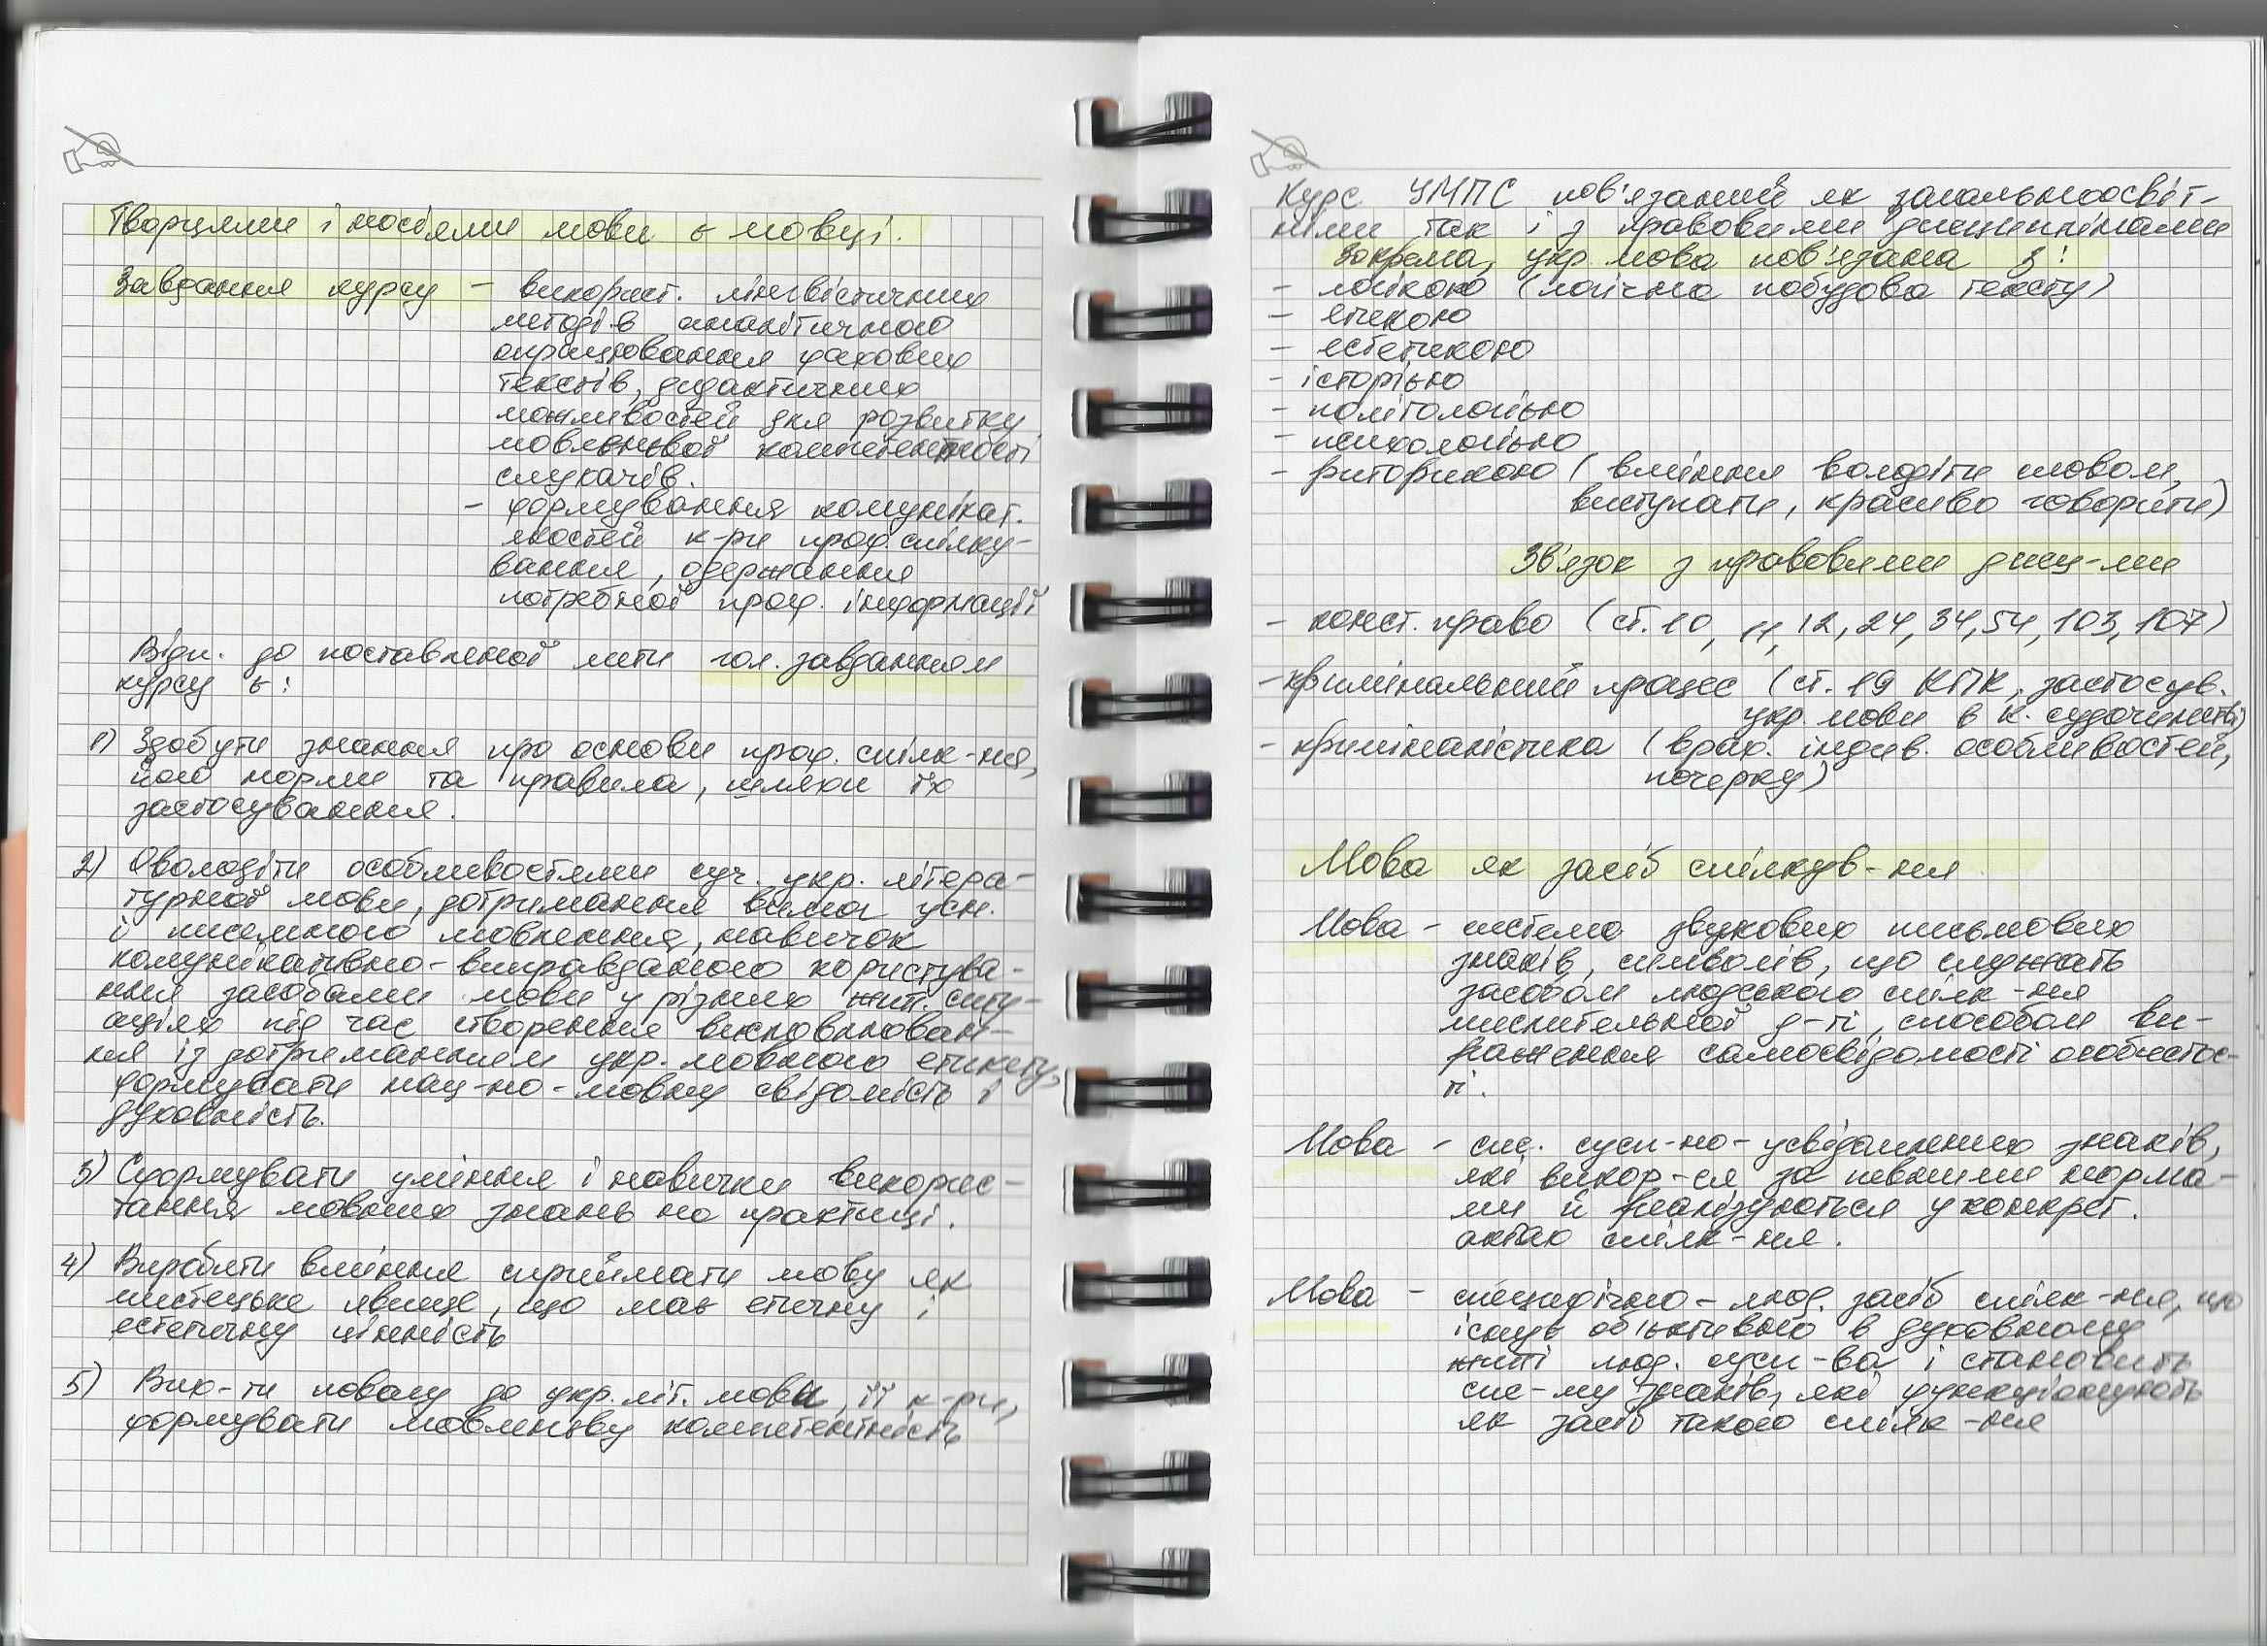 Творцями і носіями мови є мовці.
Завдання курсу – використ. лінгвістичних
методів аналітичного
опрацювання фахових
текстів, дидактичних
можливостей для розвитку
мовленнєвої компетентності
слухачів.
– формування комунікат.
якостей к-ри проф. спілку-
вання, одержання
потрібної проф. інформації
Відп. до поставленої мети гол. завданням
курсу є:
1) Здобути знання про основи проф. спілк-ння,
його норми та правила, шляхи їх
застосування.
2) Оволодіти особливостями суч. укр. літера-
турної мови, дотримання вимог усн.
і писемного мовлення, навичок
комунікативно-виправданого користува-
ння засобами мови у різних жит. ситу-
аціях під час створення висловлюван-
ня із дотриманням укр. мовного етикету,
формувати нац-но-мовну свідомість і
духовність.
3) Сформувати уміння і навички викорис-
тання мовних знань на практиці.
4) Виробити вміння сприймати мову як
мистецьке явище, що має етичну і
естетичну цінність
5) Вих-ти повагу до укр. літ. мови, її к-ри,
формувати мовленнєву компетентність
Курс УМПС пов'язаний як загальноосвіт-
німи так і з правовими дисциплінами
Зокрема, укр. мова пов'язана з:
– логікою (логічна побудова тексту)
– етикою
– естетикою
– історією
– політологією
– психологією
– риторикою (вміння володіти словом,
виступати, красиво говорити)
Зв'язок з правовими дисц-ми
– конст. право (ст. 10, 11, 12, 24, 34, 54, 103, 107)
– кримінальний процес (ст. 19 КПК, застосув.
укр. мови в к. судочинстві)
– криміналістика (врах. індив. особливостей,
почерку)
Мова як засіб спілкув-ння
Мова – система звукових письмових
знаків, символів, що служать
засобом людського спілк-ння
мислительної д-ті, способом ви-
раження самосвідомості особистос-
ті.
Мова – сис. сусп-но-усвідомлених знаків,
які викор-ся за певними норма-
ми й реалізуються у конкрет.
актах спілк-ння.
Мова – специфічно-люд. засіб спілк-ння, що
існує об'єктивно в духовному
житті люд. сусп-ва і становить
сис-му знаків, які функціонують
як засіб такого спілк-ння